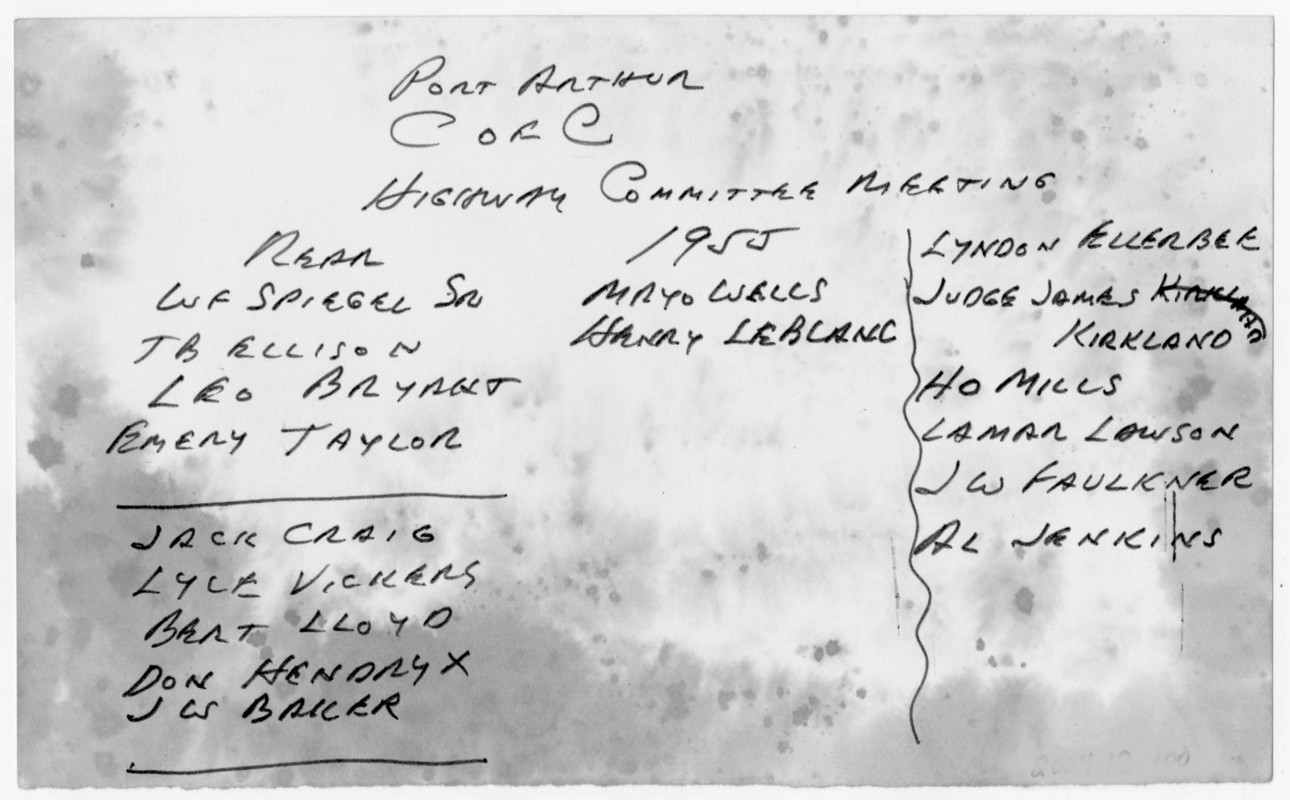 PORT ARTHUR
C OF C
HIGHWAY COMMITTEE MEETING
1955
REAR
W F SPIEGEL SR
T B ELLISON
LEO BRYANT
EMERY TAYLOR
JACK CRAIG
LYLE VICKERS
BERT LLOYD
DON HENDRYX
J W BAKER
MAYO WELLS
HENRY LEBLANC
LYNDON ELLERBEE
JUDGE JAMES KIRKLAND
KIRKLAND
HO MILLS
LAMAR LAWSON
J W FAULKNER
AL JENKINS